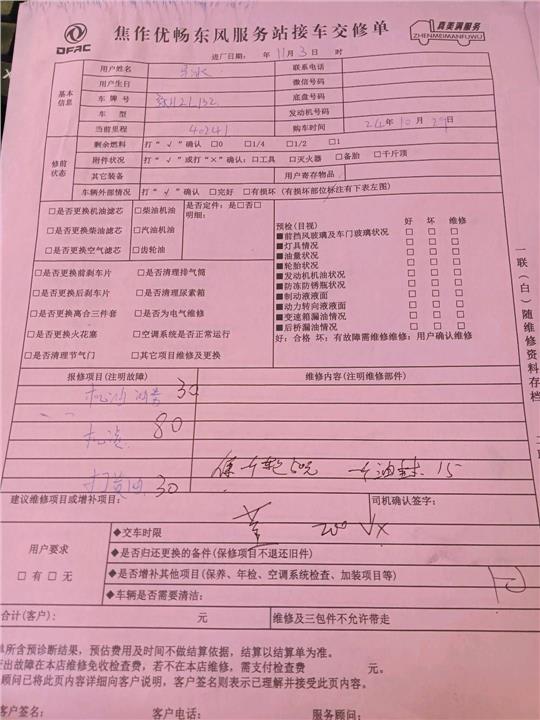 DFAC
焦作优畅东风服务站接车交修单
真美满服务
ZHENMEIMANFUWU
进厂日期: 年 11月 3日 时
基本信息
用户姓名
联系电话
用户生日
微信号码
车牌号
底盘号码
车型
发动机号码
当前里程 40241
购车时间 24年 10月 29日
修前状态
剩余燃料 打“√”确认 □0 □1/4 □1/2 □1
附件状况 打“√”或打“×”确认: □工具 □灭火器 □备胎 □千斤顶
其它装备
用户寄存物品
车辆外部情况 打“√”确认 □完好 □有损坏 (有损坏部位标注有下表左图)
□是否更换机油滤芯 □柴油机油
□是否更换柴油滤芯 □汽油机油
□是否更换空气滤芯 □齿轮油
是否定件: 是□否□
明细:
□是否更换前刹车片 □是否清理排气筒
□是否更换后刹车片 □是否清理尿素箱
□是否更换离合三件套 □是否为电气维修
□是否更换火花塞 □空调系统是否正常运行
□是否清理节气门 □其它项目维修及更换
预检(目视) 好 坏 维修
■前挡风玻璃及车门玻璃状况 □ □ □
■灯具情况 □ □ □
■油量状况 □ □ □
■轮胎状况 □ □ □
■发动机机油状况 □ □ □
■防冻防锈瓶状况 □ □ □
■制动液液面 □ □ □
■动力转向液液面 □ □ □
■变速箱漏油情况 □ □ □
■后桥漏油情况 □ □ □
好: 合格 坏: 有故障需维修维修: 用户确认维修
一联(白)随维修资料存档
报修项目(注明故障)
维修内容(注明维修部件)
30
80
打黄油 30
15
建议维修项目或增补项目:
司机确认签字:
200
用户要求
□有 □无
◆交车时限
◆是否归还更换的备件(保修项目不退还旧件)
◆是否增补其他项目(保养、年检、空调系统检查、加装项目等)
◆车辆是否需要清洁:
合计(客户): 元
维修及三包件不允许带走
单所含预诊断结果，预估费用及时间不做结算依据，结算以结算单为准。
查出故障在本店维修免收检查费，若不在本店维修，需支付检查费 元。
顾问已将此页内容详细向客户说明，客户签名则表示已理解并接受此页内容。
客户签名: 客户电话: 服务顾问: